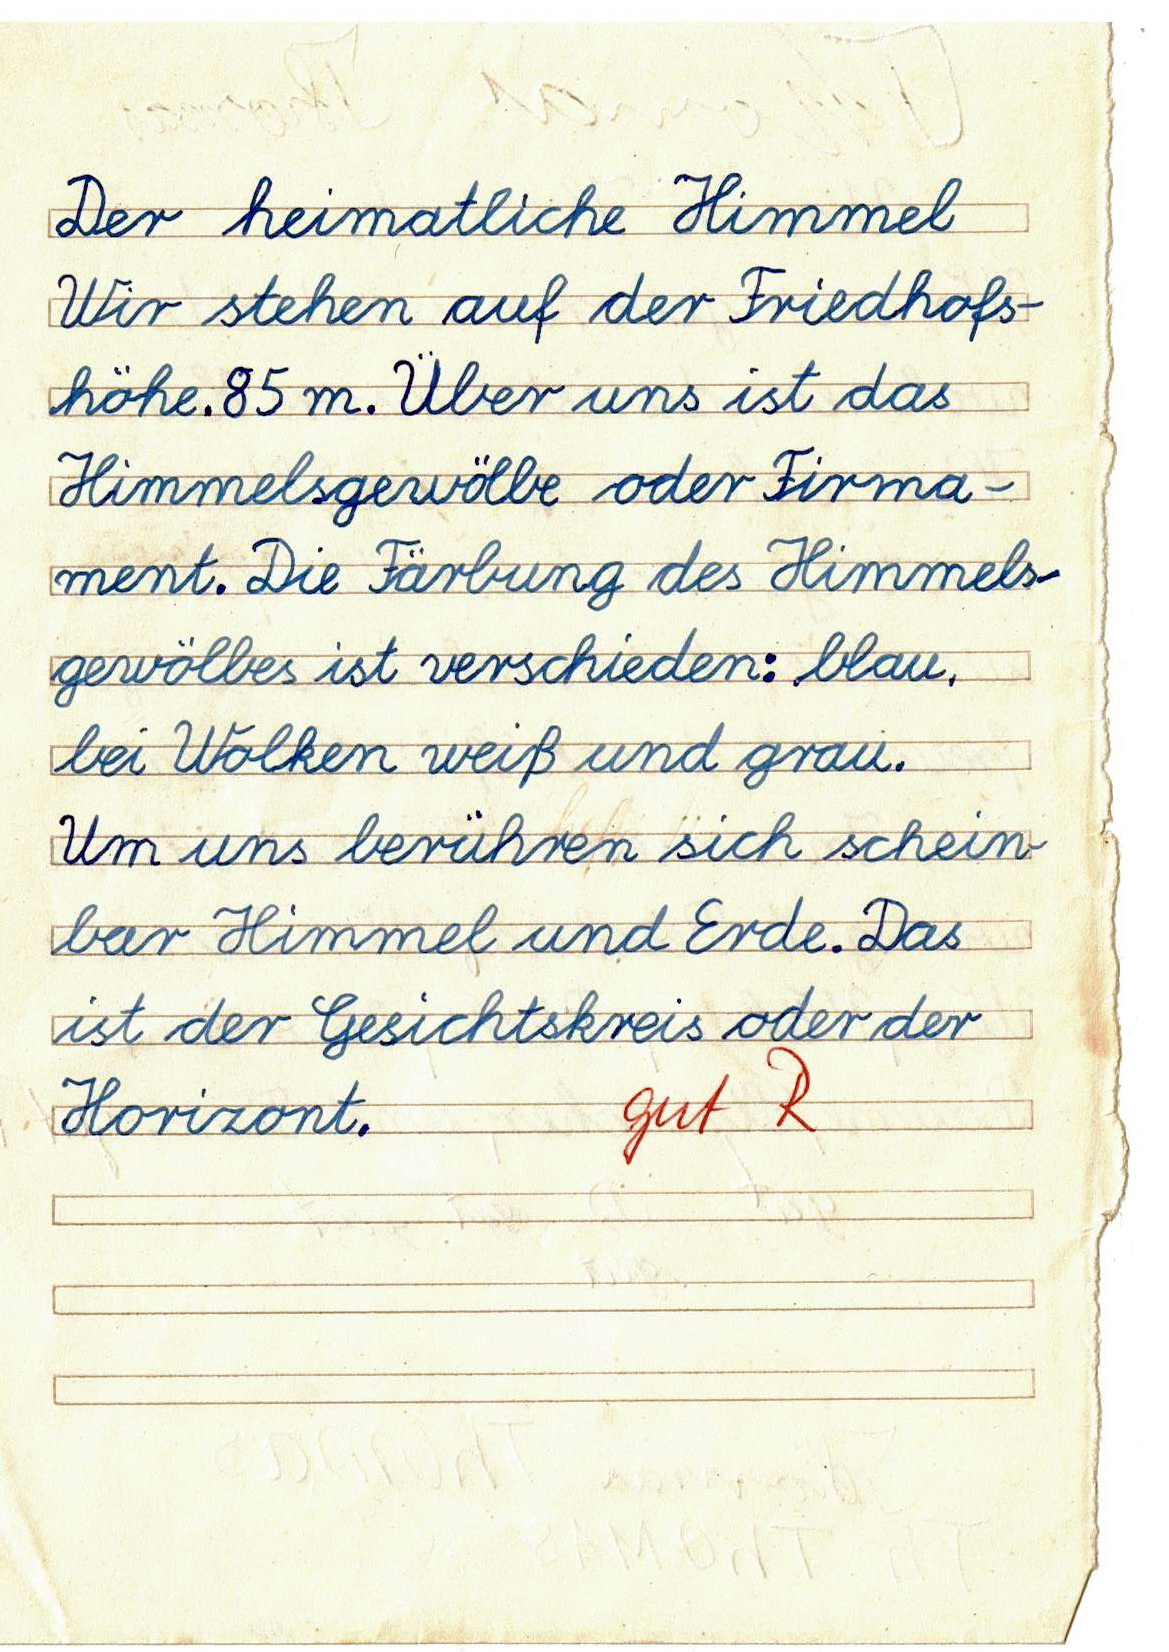 Der heimatliche Himmel
Wir stehen auf der Friedhofs-
höhe. 85 m. Über uns ist das
Himmelsgewölbe oder Firma-
ment. Die Färbung des Himmels-
gewölbes ist verschieden: blau,
bei Wolken weiß und grau.
Um uns berühren sich schein-
bar Himmel und Erde. Das
ist der Gesichtskreis oder der
Horizont. gut R
Thomas
Th THOMAS